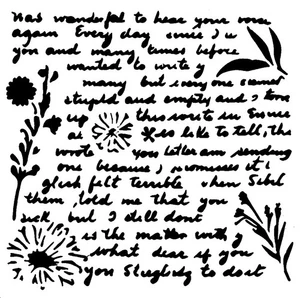 was wonderful to hear your voice
again Every day since I
you and many times before
wanted to write y
many but every one seemed
stupid and empty and I tore
up this wrote in
as like to tell, the
wrote you letter am sending
one because, I promesses it i
glish felt terrible when Sibel
them, told me that you
sick but I still dont
is the matter with y
what dear if you
you to do it